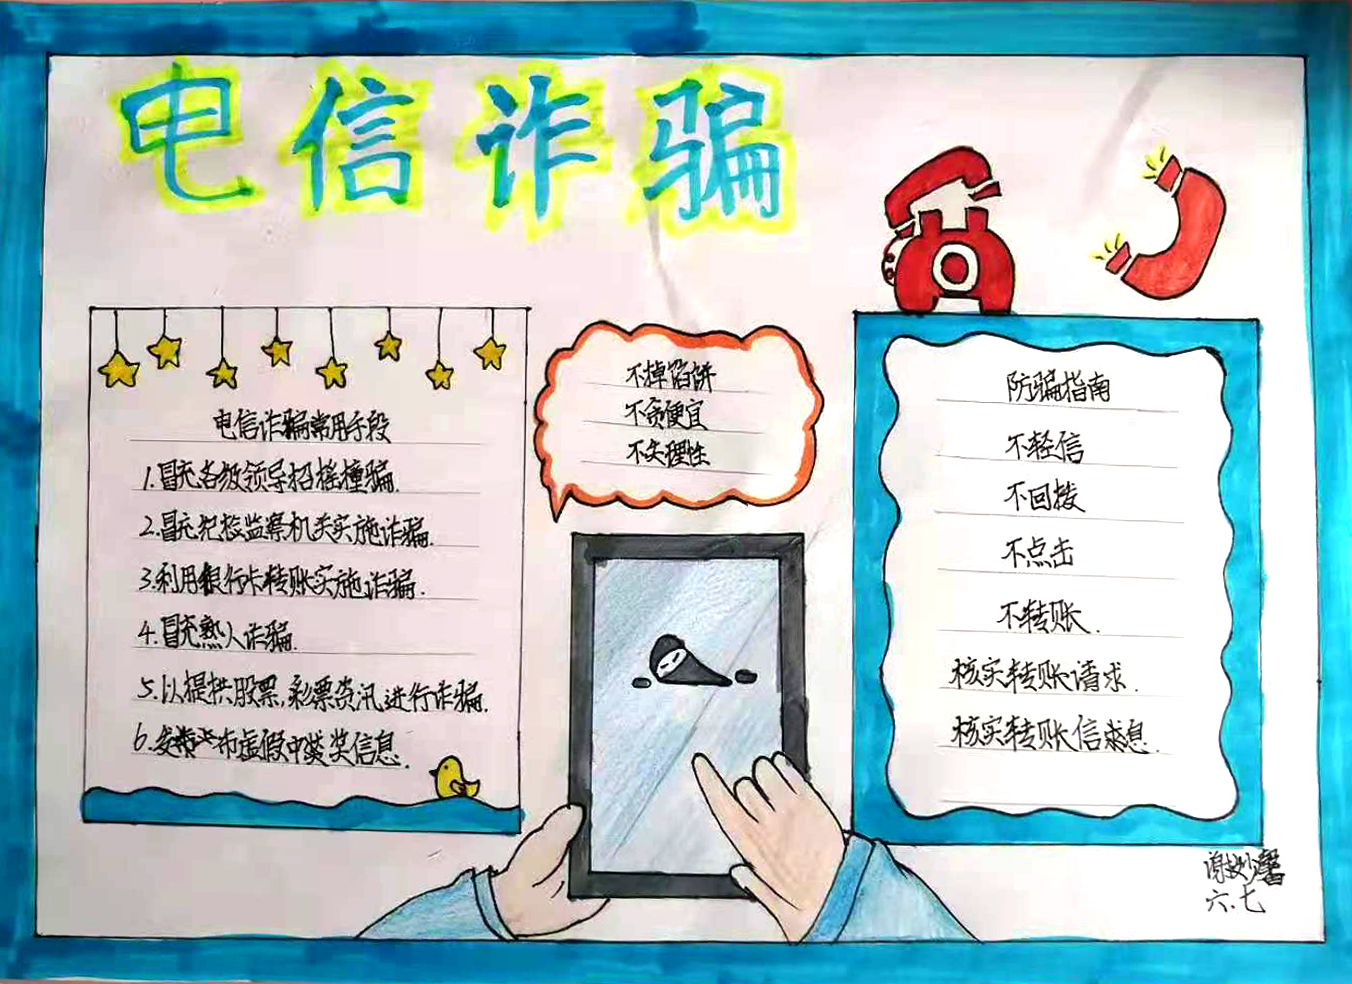 电信诈骗
电信诈骗常用手段
1.冒充各级领导招摇撞骗.
2.冒充纪检监察机关实施诈骗.
3.利用银行卡转账实施诈骗.
4.冒充熟人诈骗.
5.以提供股票,彩票资讯进行诈骗.
6.发布虚假中奖信息.
不掉馅饼
不贪便宜
不失理性
防骗指南
不轻信
不回拨
不点击
不转账.
核实转账请求.
核实转账信息.
六.七